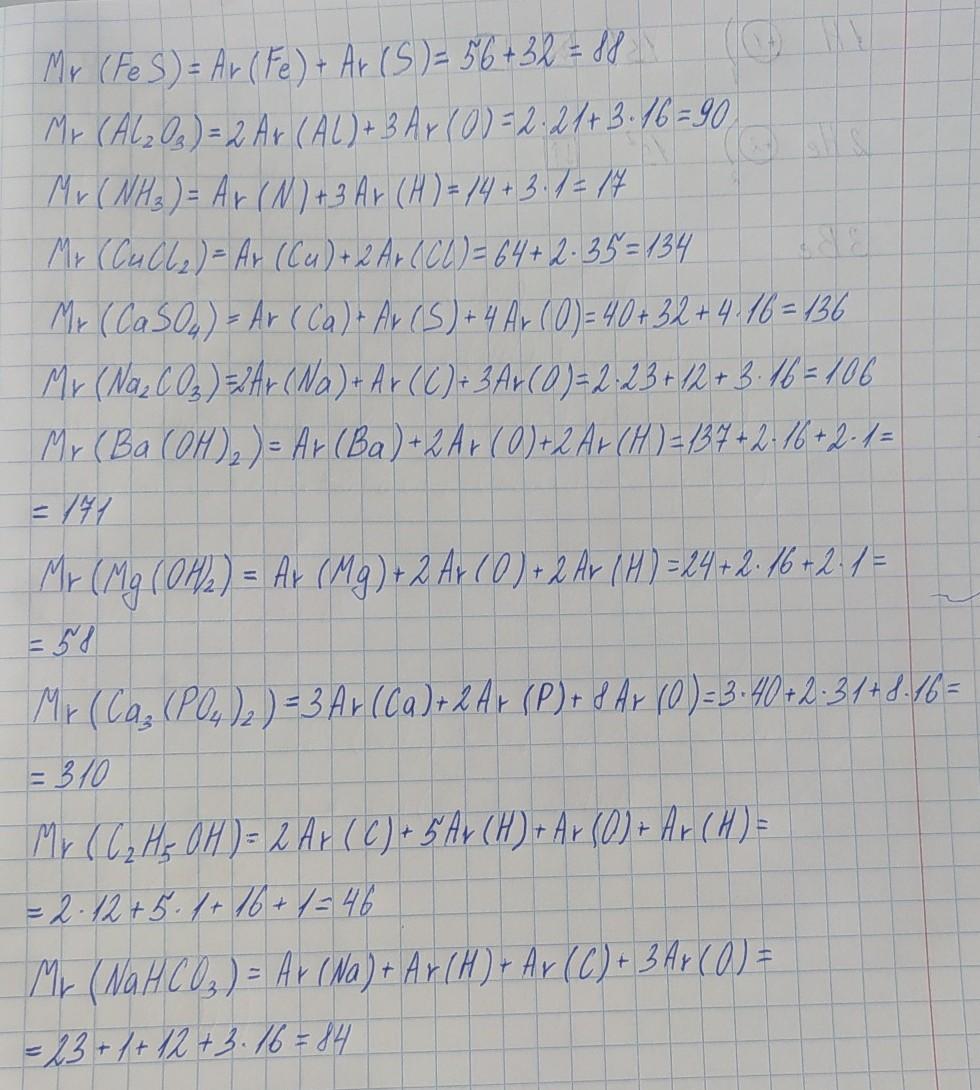 Mr (FeS) = Ar (Fe) + Ar (S) = 56 + 32 = 88
Mr (Al₂O₃) = 2 Ar (Al) + 3 Ar (O) = 2·21 + 3·16 = 90
Mr (NH₃) = Ar (N) + 3 Ar (H) = 14 + 3·1 = 17
Mr (CuCl₂) = Ar (Cu) + 2 Ar (Cl) = 64 + 2·35 = 134
Mr (CaSO₄) = Ar (Ca) + Ar (S) + 4 Ar (O) = 40 + 32 + 4·16 = 136
Mr (Na₂CO₃) = 2Ar (Na) + Ar (C) + 3Ar (O) = 2·23 + 12 + 3·16 = 106
Mr (Ba(OH)₂) = Ar (Ba) + 2 Ar (O) + 2 Ar (H) = 137 + 2·16 + 2·1 =
= 171
Mr (Mg(OH)₂) = Ar (Mg) + 2 Ar (O) + 2 Ar (H) = 24 + 2·16 + 2·1 =
= 58
Mr (Ca₃(PO₄)₂) = 3 Ar (Ca) + 2 Ar (P) + 8 Ar (O) = 3·40 + 2·31 + 8·16 =
= 310
Mr (C₂H₅OH) = 2 Ar (C) + 5 Ar (H) + Ar (O) + Ar (H) =
= 2·12 + 5·1 + 16 + 1 = 46
Mr (NaHCO₃) = Ar (Na) + Ar (H) + Ar (C) + 3 Ar (O) =
= 23 + 1 + 12 + 3·16 = 84